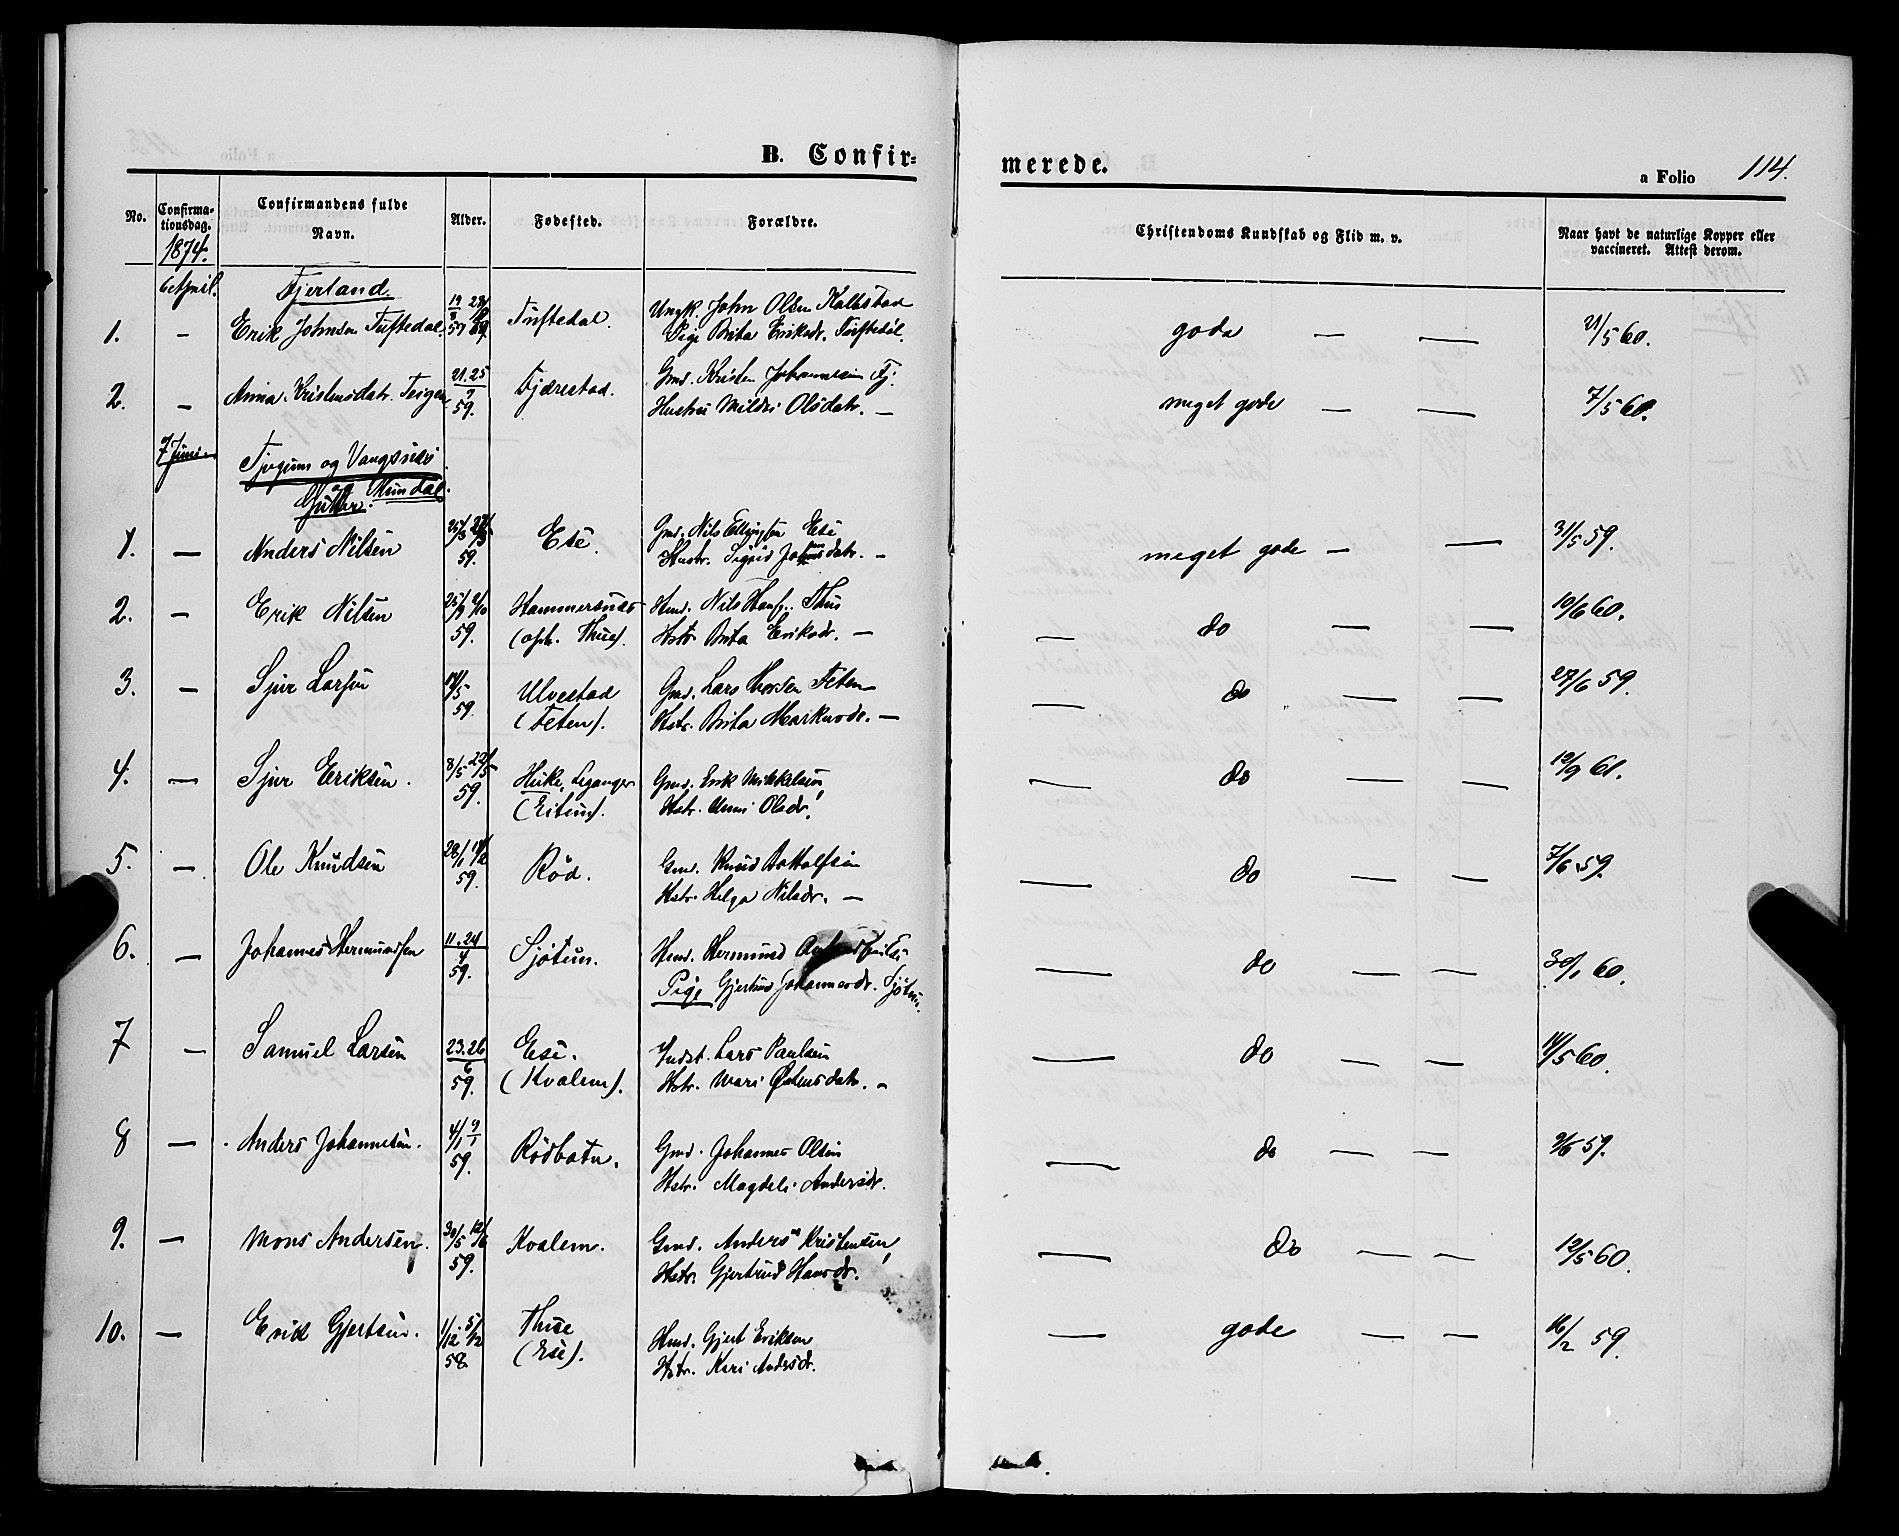 B. Confir=
merede.
a Folio 114.
No. Confirma-tionsdag. Confirmandens fulde Navn. Alder. Fødested. Forældre. Christendoms Kundskab og Flid m. v. Naar havt de naturlige Kopper eller vaccineret. Attest derom.
1874.
6 April. Fjerland.
1. — Erik Johnsen Tuftedal. 59 Tuftedal. Ungk. John Olsen
Pige Brita Eriksdr. Tuftedal. gode — — 21/5 60.
2. — Anna Kristensdatr. Teigen 21.25/7 59. Fjærestad. Gmd. Kristen Johannesen Fj.
Hustru Mildri Olsdatr. — meget gode — — 7/5 60.
7 Juni — Tjugum og Vangsnæs
og Mundal.
Gutter.
1. — Anders Nilsen 59. Ese. Gmd. Nils Ellingsen Ese
Hustr. Sigrid Johnsdatr. — meget gode — — 31/5 59.
2. — Erik Nilsen 25/9 2/10 59. Hammersnæs
(oph. Thue). Hmd. Nils Hansen Thue
Hstr. Brita Eriksdr. — — do — — 10/6 60.
3. — Sjur Larsen 59. Ulvestad
(Feten). Gmd. Lars Thorsen Feten
Hstr. Brita Markusdr. — — do — — 27/6 59.
4. — Sjur Eriksen. 8/5 29/5 59. Huske, Leganger
(Eitun). Gmd. Erik Mikkelsen
Hstr. Unni Olsdr. — do — — 12/9 61.
5. — Ole Knudsen 59. Rød. Gmd. Knud Bottolfsen
Hstr. Helga Nilsdr. — — do — — 7/6 59.
6. — Johannes Hermundsen 11.24/4 59. Sjøtun. Hmd. Hermund
Pige Gjertrud Johannesdr. Sjøtun. — do — — 30/1 60.
7 — Samuel Larsen 23.26/6 59. Ese.
(Kvalem). Indst. Lars Paulsen
Hstr. Mari Østensdatr. — — do — — 14/5 60.
8 — Anders Johannesen. 4/1 9/1 59. Rødbotn. Gmd. Johannes Olsen
Hstr. Magdeli Andersdr. — do — — 9/6 59.
9. — Mons Andersen. 30/5 12/6 59. Kvalem. Gmd. Anders Kristensen
Hstr. Gjertrud Hansdr. — do — — 12/5 60.
10. — Erik Gjertsen. 1/12 5/12 58 Thue
(Ese). Hmd. Gjert Eriksen
Hstr. Kari Andersdr. — gode — — 16/2 59.